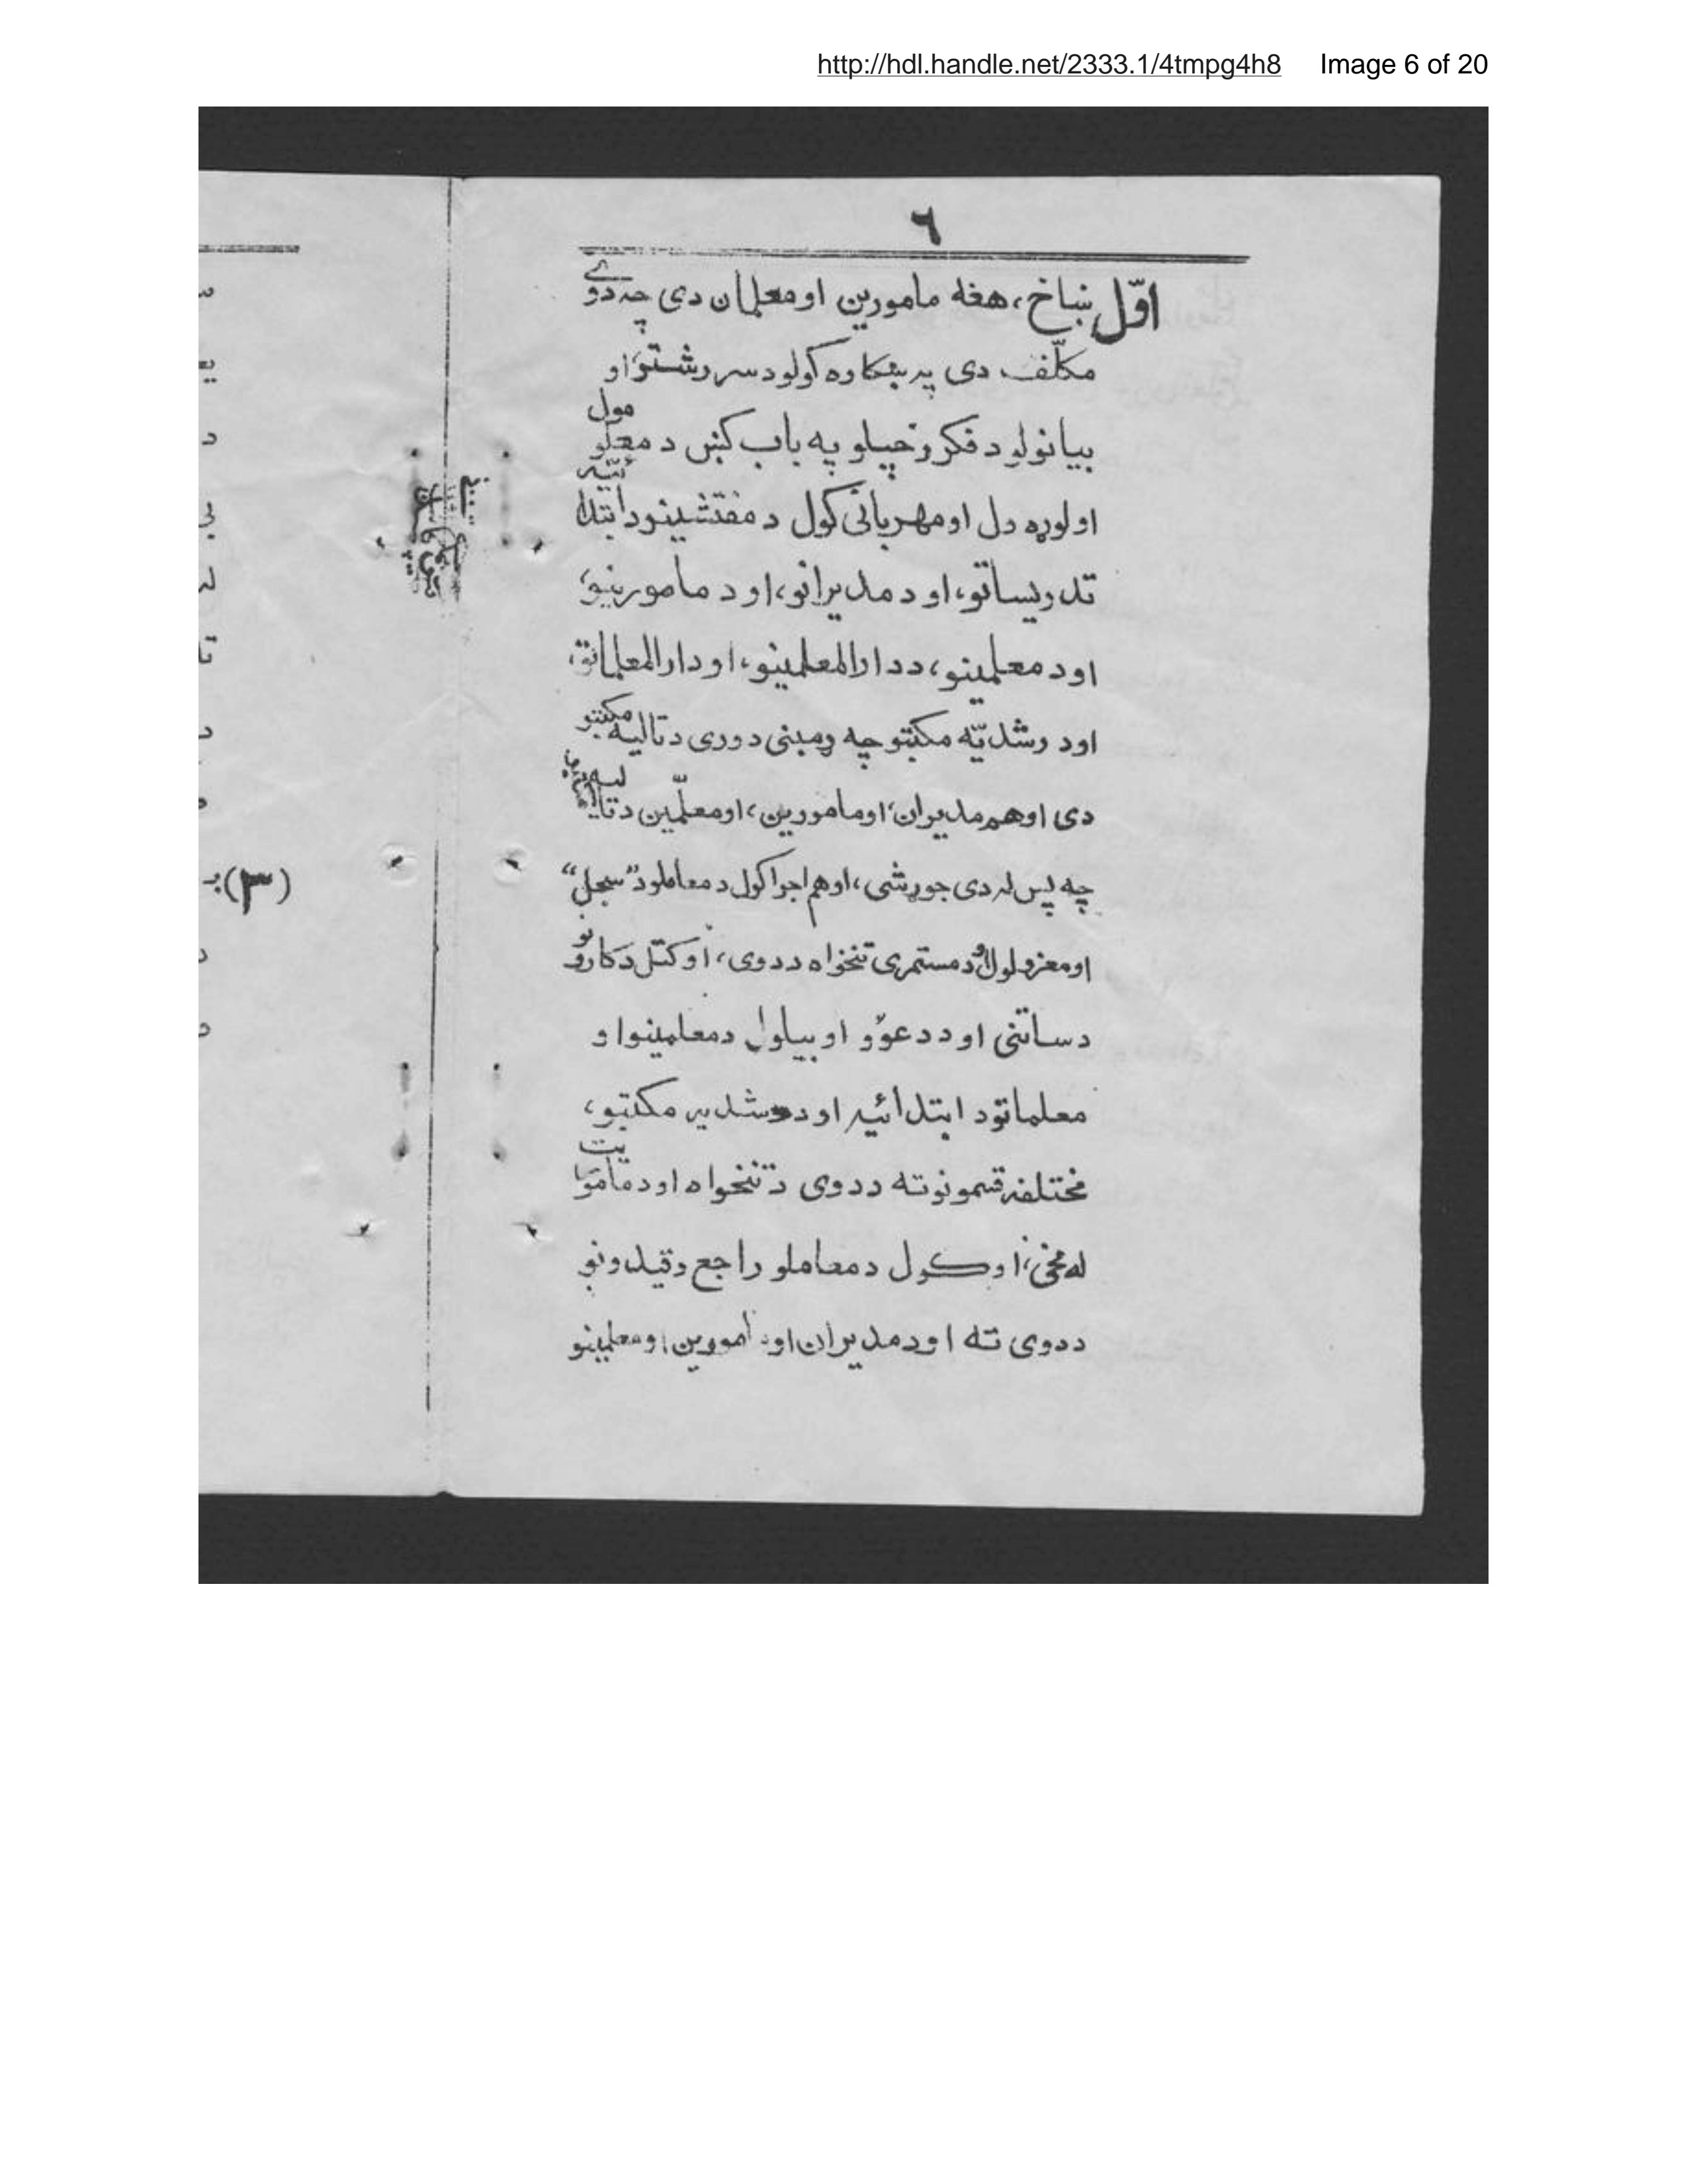 http://hdl.handle.net/2333.1/4tmpg4h8 Image 6 of 20
٦
اوّل ښاخ، هغه مامورین او معلمان دی چه دوے
مکلّف دی په ښکاره کولو د سررشتو، او
بیانولو د فکرو خپلو په باب کښ د معلومول
او لوړه ول او مهربانی کول د مفتشینو د ابتدائیه
تدریساتو، او د مدیرانو، او د مامورینو،
او د معلمینو، د دارالمعلمینو، او دارالمعلماتو،
او د رشدیّه مکتبو چه ړمبنی دوری د تالیه مکتبو
دی او هم مدیران، او مامورین، او معلّمین د تالیه
چه پس له دی جوړشی، او هم اجرا کول د معاملو د "سجل"
او معزولول او د مستمری تنخواه د دوی، او کتل د کارونو
د ساتنی او د دعوو او بیاول د معلمینو او
معلماتو د ابتدائیه او د رشدیه مکتبو،
مختلفه قسمونو ته د دوی د تنخواه او د ماموریت
له مخی، او کول د معاملو راجع و قیدونو
د دوی ته او د مدیران او مامورین او معلمینو
(٣)